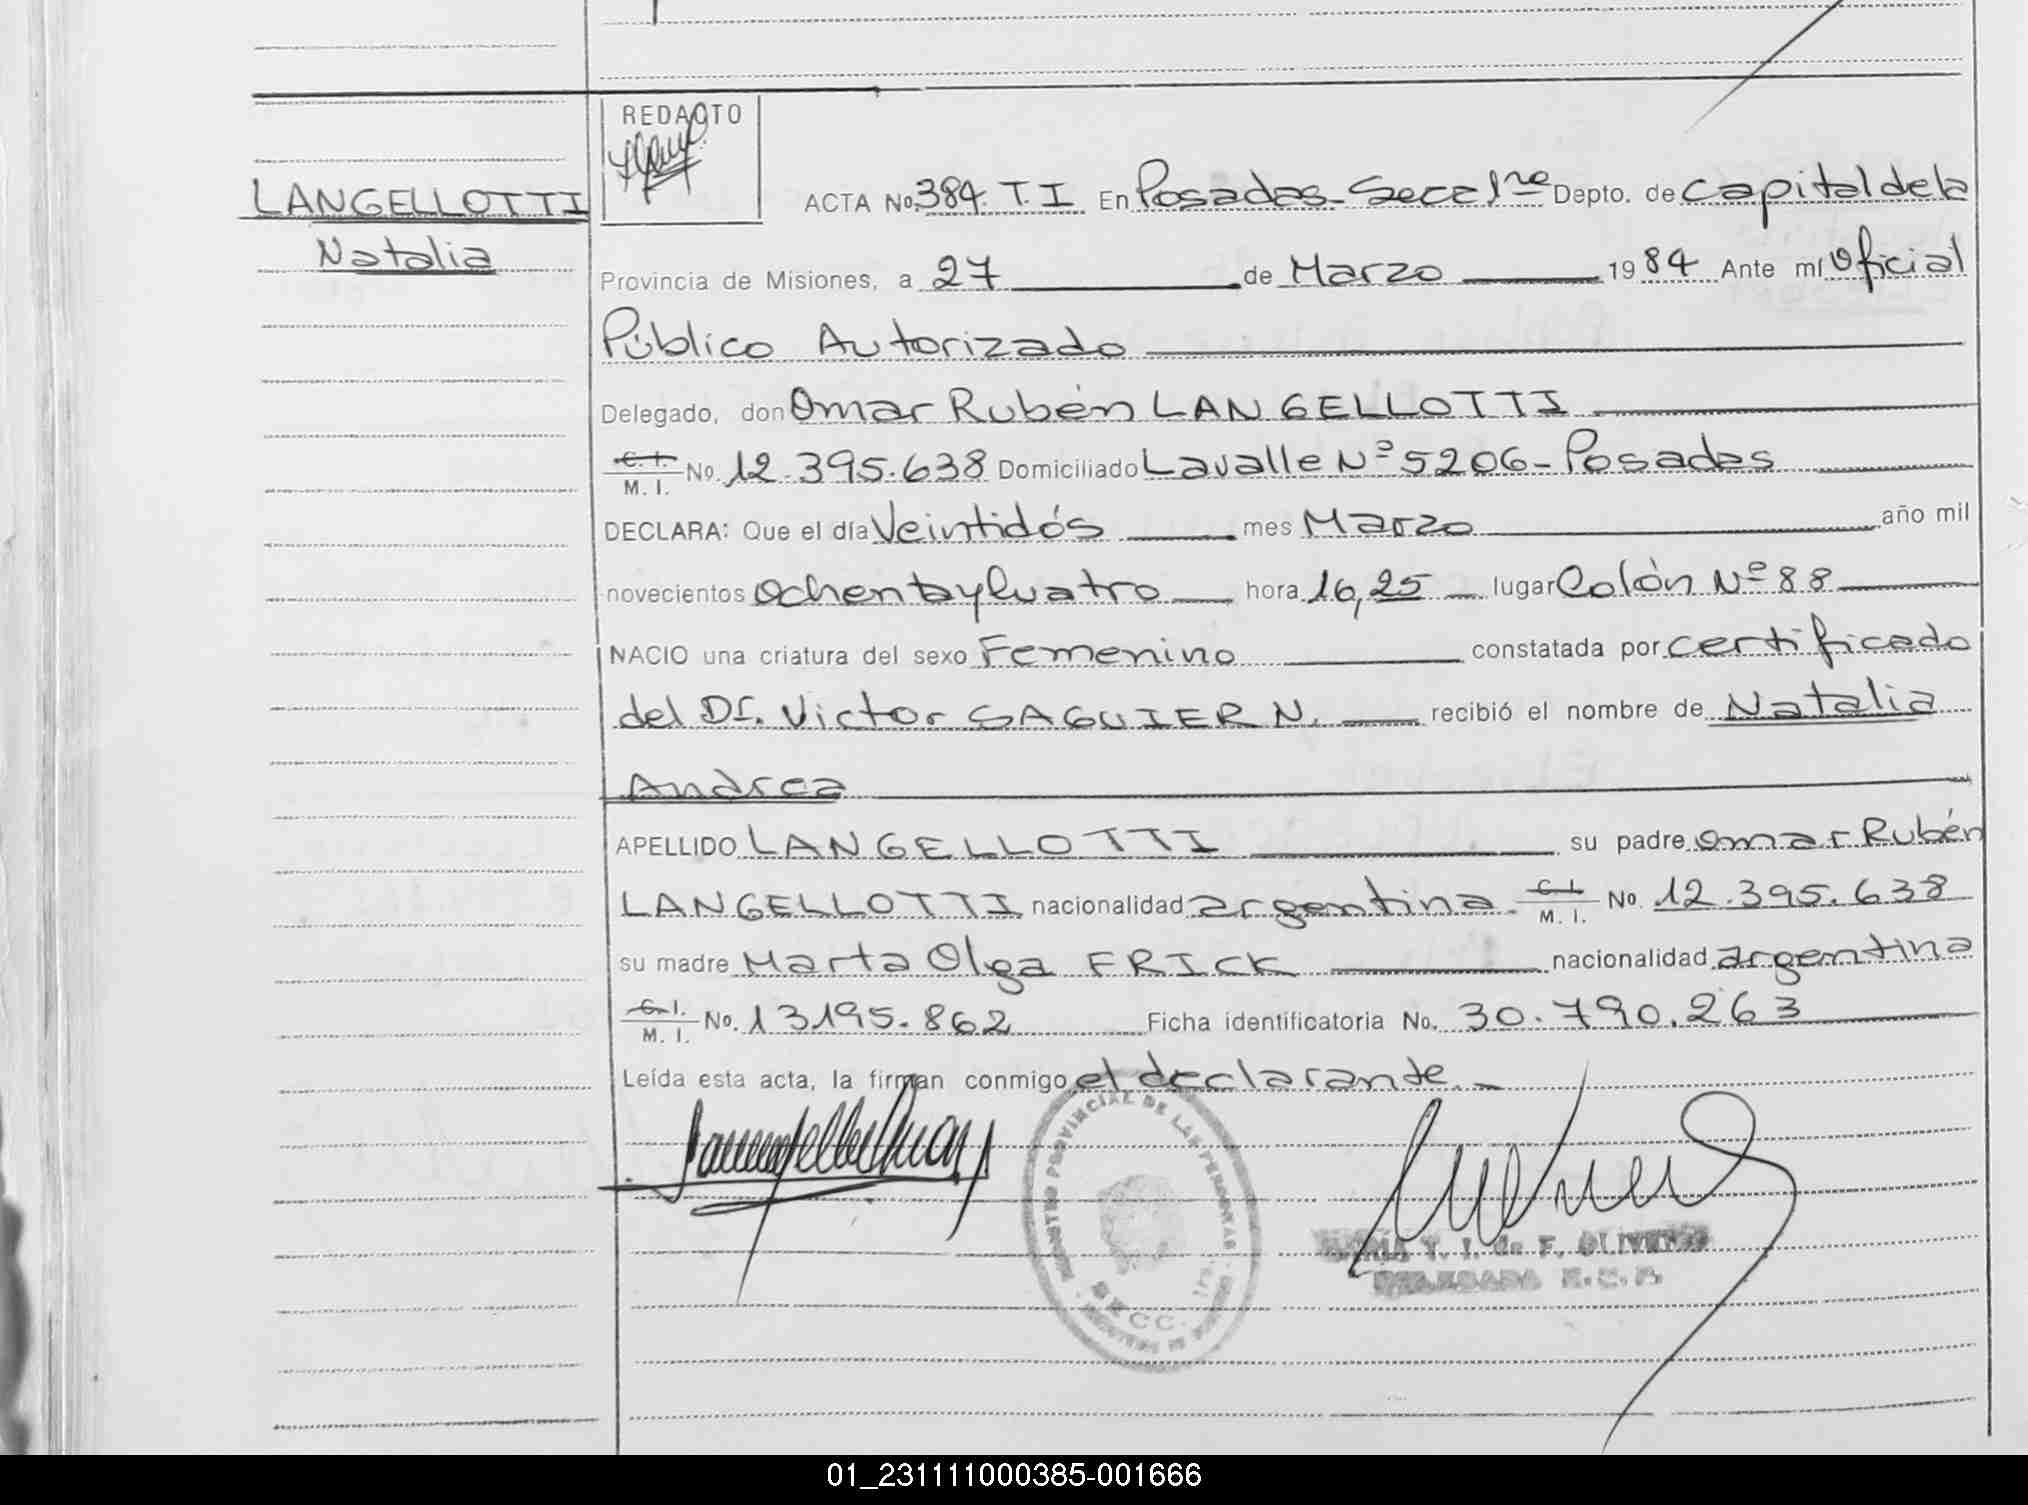 REDACTO
LANGELLOTTI
Natalia
ACTA No. 384. T. I En Posadas - Secc 1ra Depto. de Capital de la
Provincia de Misiones, a 27 de Marzo 1984 Ante mí Oficial
Público Autorizado
Delegado, don Omar Rubén LANGELLOTTI
C. I. M. I. No. 12.395.638 Domiciliado Lavalle Nº 5206 - Posadas
DECLARA: Que el día Veintidós mes Marzo año mil
novecientos Ochenta y Cuatro hora 16,25 lugar Colón Nº 88
NACIO una criatura del sexo Femenino constatada por certificado
del Dr. Victor SAGUIER N. recibió el nombre de Natalia
Andrea
APELLIDO LANGELLOTTI su padre Omar Rubén
LANGELLOTTI nacionalidad argentina. C. I. M. I. No. 12.395.638
su madre Marta Olga FRICK nacionalidad argentina
C. I. M. I. No. 13195.862 Ficha identificatoria No. 30.790.263
Leída esta acta, la firman conmigo el declarante.
REGISTRO PROVINCIAL DE LAS PERSONAS
T. I. de F. OLIVEIRA
DELEGADA R. C. P.
01_231111000385-001666